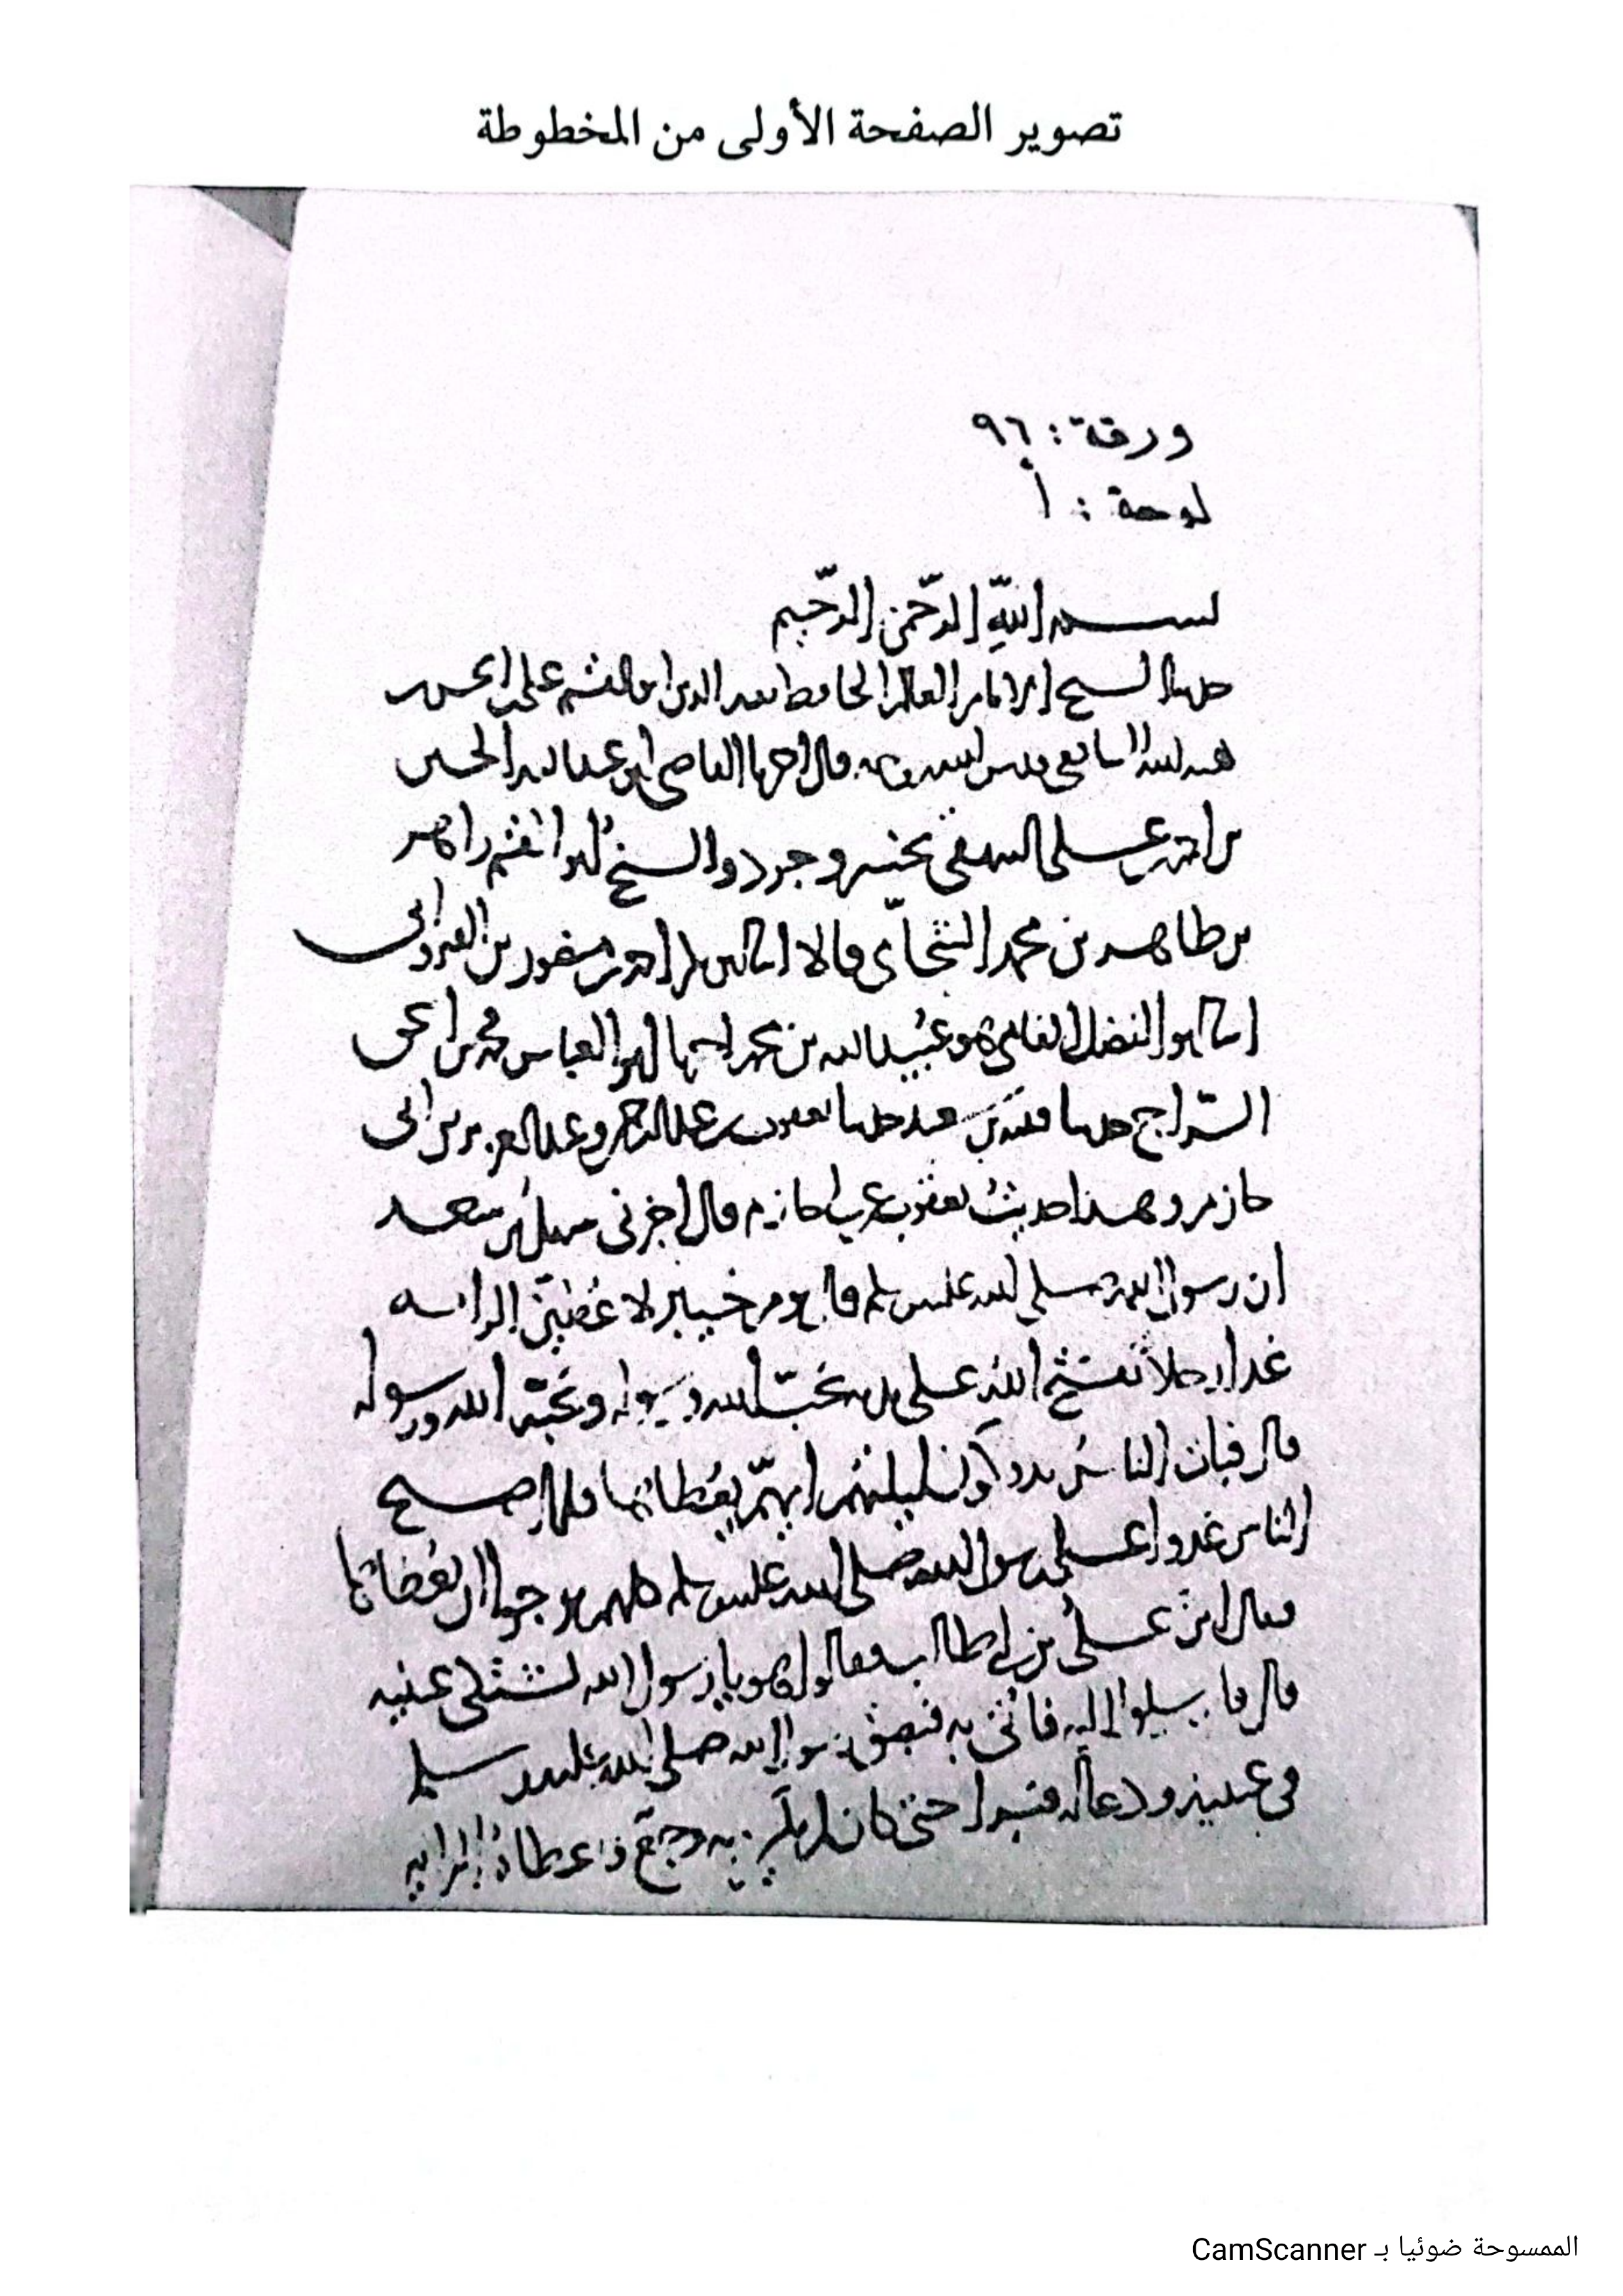 تصوير الصفحة الأولى من المخطوطة
ورقة : ٩٦
لوحة : أ
بسم اللهِ الرّحمن الرّحيم
حدثنا الشيخ الامام العالم الحافظ الدين ابو القسم على بن الحسن
هبة الله الشافعي قدس الله روحه قال اخبرنا القاضي ابو عبد الله الحسين
بن احمد بن على البيهقي بخسروجرد والشيخ ابو القسم زاهر
بن طاهر بن محمد الشحّامي قالا انا ابو بكر احمد بن منصور بن
انا ابو الفضل الفامي هو عُبيد الله بن محمد اخبرنا ابو العباس محمد بن اسحق
السّراج حدثنا قتيبة بن سعيد حدثنا يعقوب بن عبد الرحمن وعبد العزيز بن ابى
حازم وهذا حديثُ يعقوب عن ابى حازم قال اخبرنى سهل بن سعد
ان رسول الله صلى الله عليه وسلم قال يوم خيبر لاعُطينّ الراية
غدا رجلا تفتح اللهُ على يديه يحبّ الله ورسوله ويحبّه الله ورسوله
قال فبات الناسُ يدوكون ليلتهم ايهمّ يعُطاها فلما اصبح
الناس غدوا على رسول الله صلى الله عليه وسلم كلهم يرجوا ان يعُطاها
فقال اين على بن ابى طالب فقالوا هو يا رسول الله تشتكى عينيه
قال فارسلوا اليه فاتى به فبصق رسول الله صلى الله عليه وسلم
فى عينيه ودعا له فبرا حتى كان لم يكن به وجع فاعطاهُ الراية
الممسوحة ضوئيا بـ CamScanner